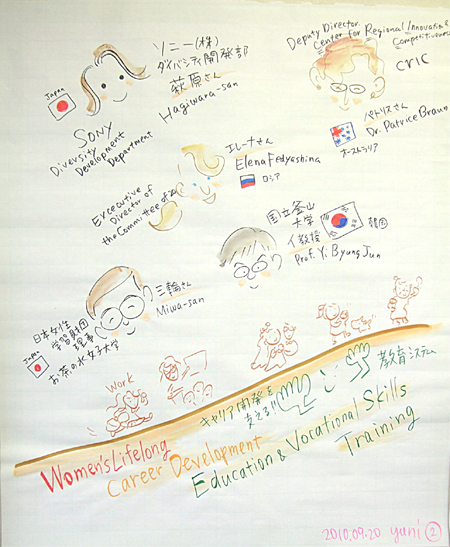 ソニー(株)
ダイバシティ開発部
萩原さん
Hagiwara-san
Japan
SONY
Diversity
Development
Department
Deputy Director
Center for Regional Innovation &
Competitiveness
CRIC
パトリスさん
Dr. Patrice Braun
オーストラリア
エレーナさん
Elena Fedyashina
ロシア
Excecutive
Director of
the Committee of
国立釜山
大学
イ教授
Prof. Yi Byung Jun
韓国
三輪さん
Miwa-san
日本女性
学習財団
理事
お茶の水女子大学
Japan
Work
キャリア開発を
支える!!
教育システム
Women's Lifelong
Career Development
Education & Vocational Skills
Training
2010.09.20 yuni ②